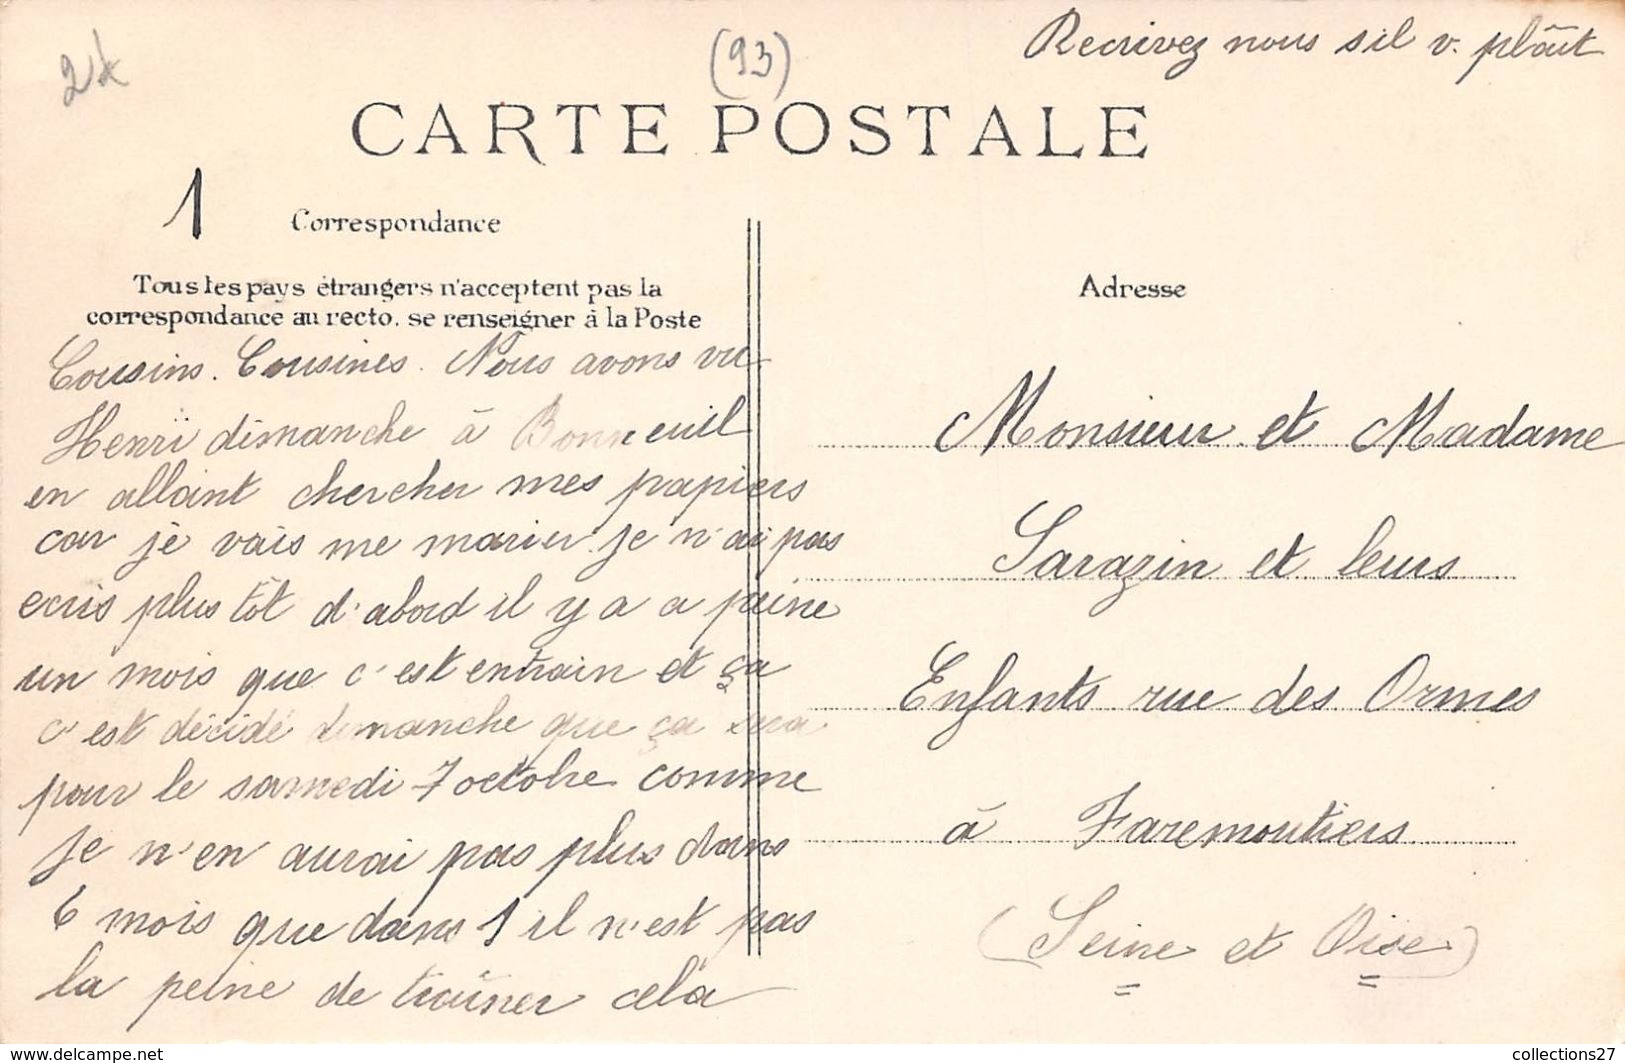 2k
(93)
Recrivez nous sil v. plâit
CARTE POSTALE
1
Correspondance
Tous les pays étrangers n'acceptent pas la
correspondance au recto, se renseigner à la Poste
Cousins. Cousines. Nous avons vu
Henri dimanche à Bonneuil
en allant chercher mes papiers
car je vais me marier. je n'ai pas
ecris plus tôt d'abord il y a a peine
un mois que c'est entrain et ça
c'est décidé dimanche que ça sera
pour le samedi 7 octobre comme
je n'en aurai pas plus dans
6 mois que dans 1 il n'est pas
la peine de traîner cela
Adresse
Monsieur et Madame
Sarazin et leurs
Enfants rue des Ormes
à Faremoutiers
(Seine et Oise)
www.delcampe.net
collections27